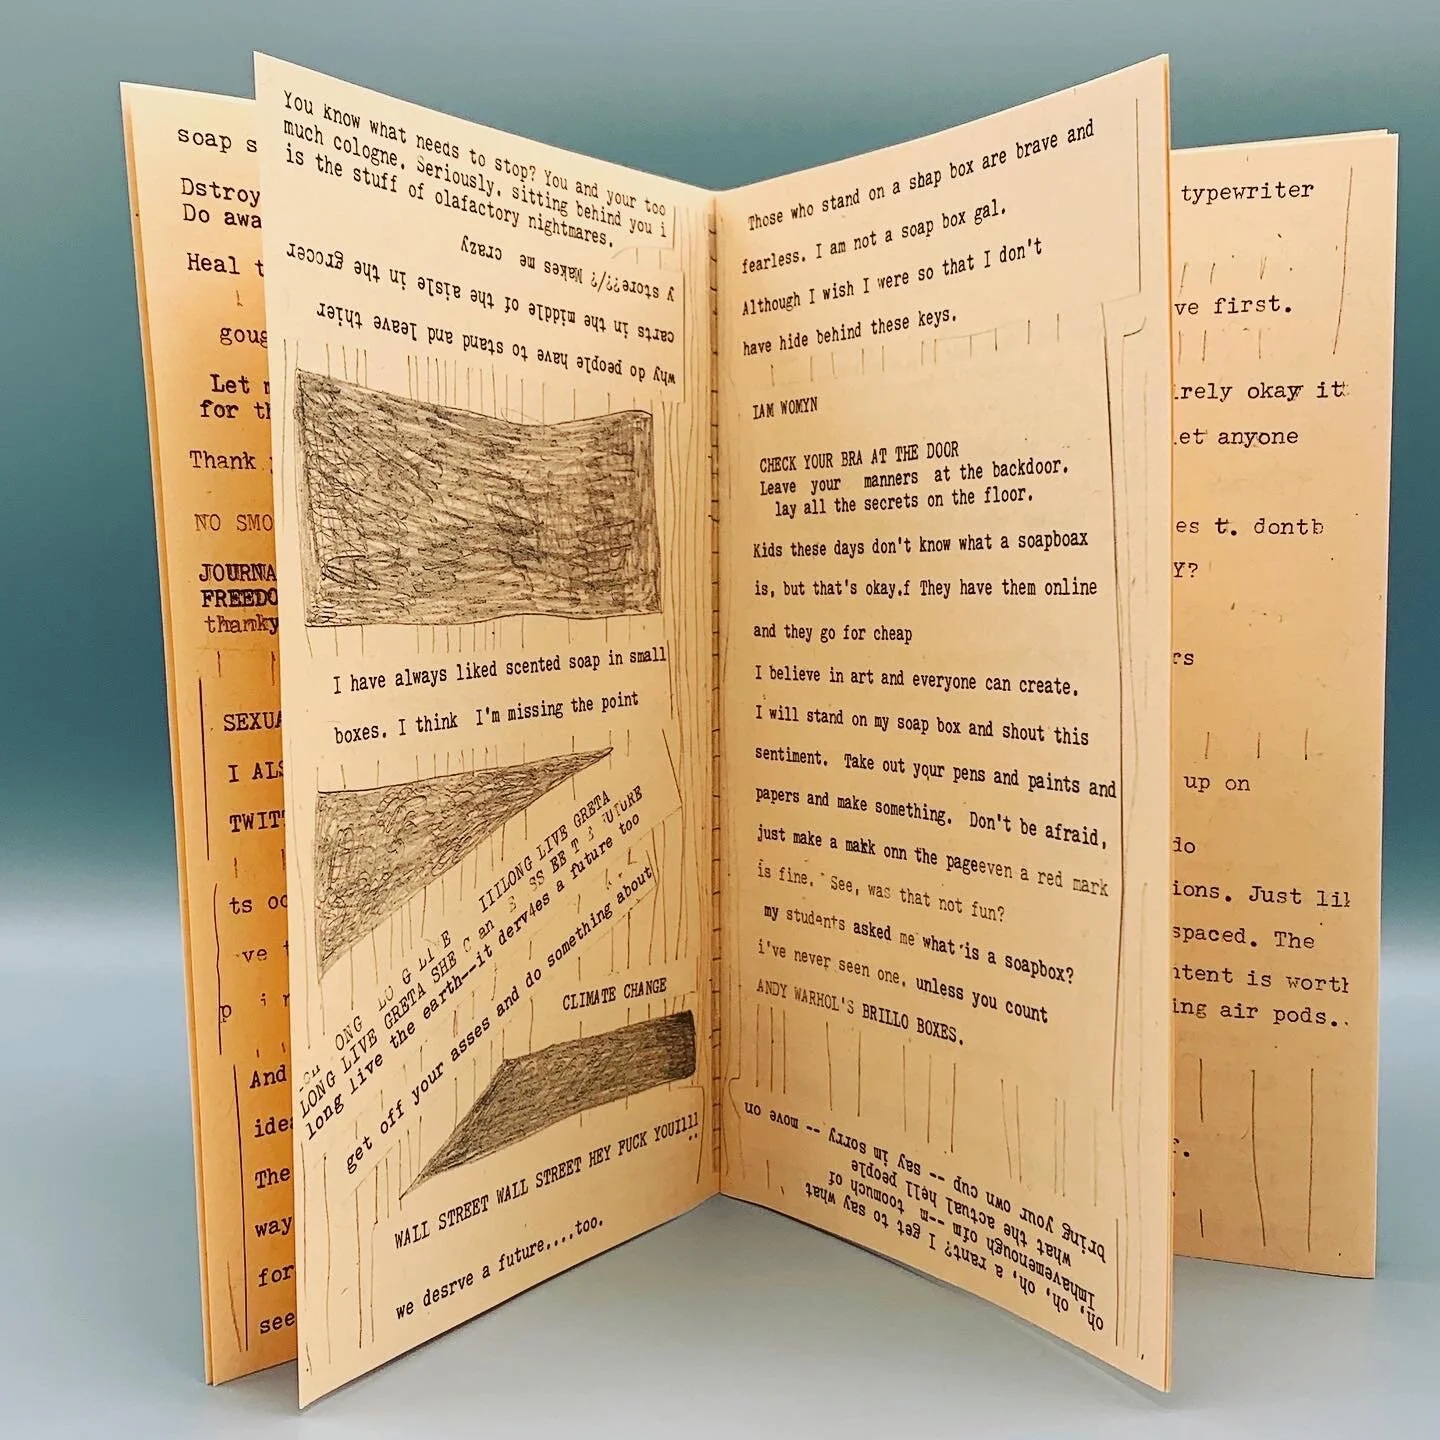 soap s
Dstroy
Do awa
Heal t
goug
Let m
for th
Thank
NO SMO
JOURNA
FREEDO
thanky
SEXUA
I ALS
TWIT
ts oc
ve t
p i n
And
idea
The
way
for
see
You know what needs to stop? You and your too
much cologne. Seriously, sitting behind you i
is the stuff of olafactory nightmares.
why do people have to stand and leave thier
carts in the middle of the aisle in the grocer
y store??/? Makes me crazy
I have always liked scented soap in small
boxes. I think I'm missing the point
ONG LO G LI E IIILONG LIVE GRETA
LONG LIVE GRETA SHE C an
long live the earth--it derv4es a future too
get off your asses and do something about
CLIMATE CHANGE
WALL STREET WALL STREET HEY FUCK YOUilll
we desrve a future....too.
Those who stand on a shap box are brave and
fearless. I am not a soap box gal.
Although I wish I were so that I don't
have hide behind these keys.
IAM WOMYN
CHECK YOUR BRA AT THE DOOR
Leave your manners at the backdoor.
lay all the secrets on the floor.
Kids these days don't know what a soapboax
is, but that's okay.f They have them online
and they go for cheap
I believe in art and everyone can create.
I will stand on my soap box and shout this
sentiment. Take out your pens and paints and
papers and make something. Don't be afraid,
just make a makk onn the pageeven a red mark
is fine. See, was that not fun?
my students asked me what is a soapbox?
i've never seen one, unless you count
ANDY WARHOL'S BRILLO BOXES.
oh, oh, oh, a rant? I get to say what
Imhavemenough ofm --m- toomuch of
what the actual hell people
bring your own cup -- say im sorry -- move on
typewriter
ve first.
irely okay it
et anyone
es t. dontb
Y?
rs
up on
do
ions. Just lik
spaced. The
ntent is worth
ing air pods..